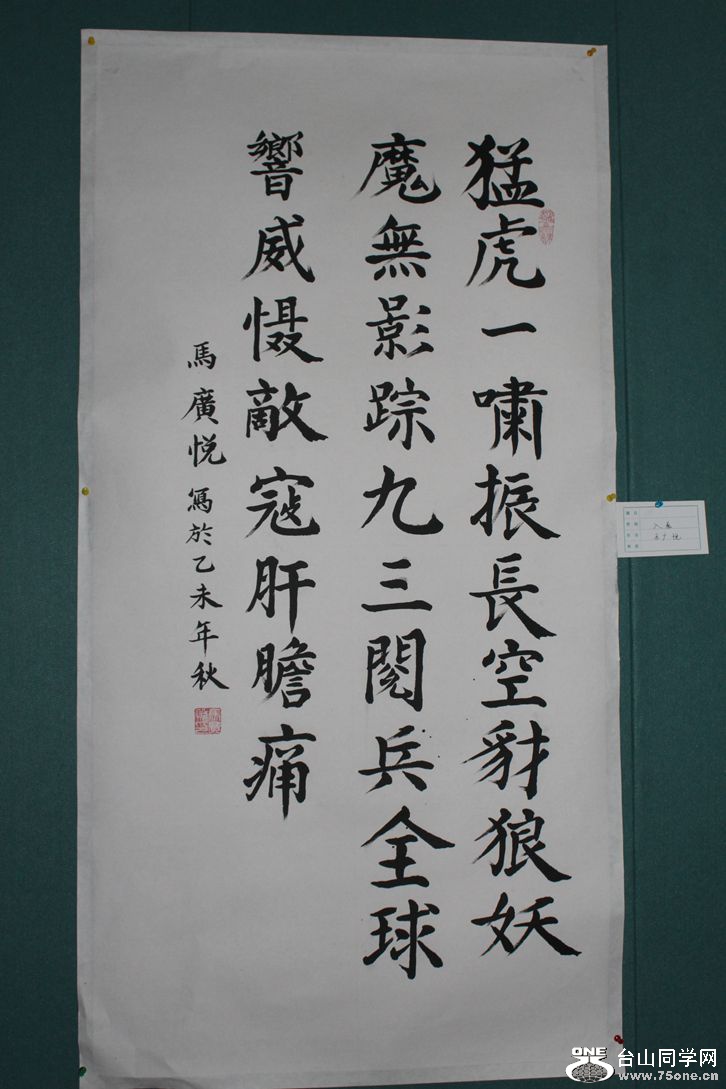 猛虎一啸振長空豺狼妖
魔無影踪九三閱兵全球
響威慑敵寇肝膽痛
馬廣悦寫於乙未年秋
入展
ONE
台山同学网
www.75one.cn